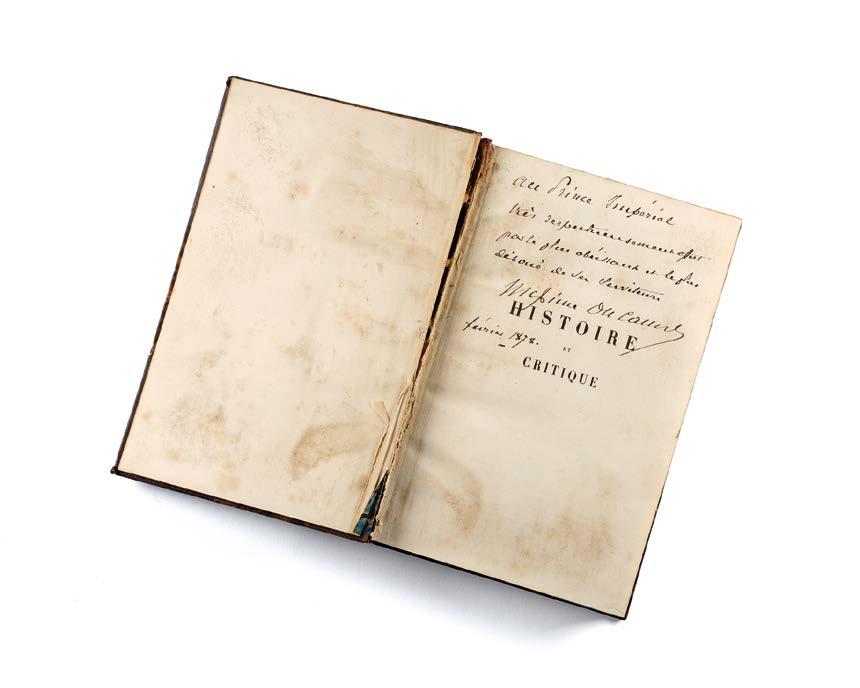 au Prince Impérial
très respectueusement offert
par le plus obéissant et le plus
dévoué de ses serviteurs
Maxime Du Camp
HISTOIRE
février 1878.
ET
CRITIQUE